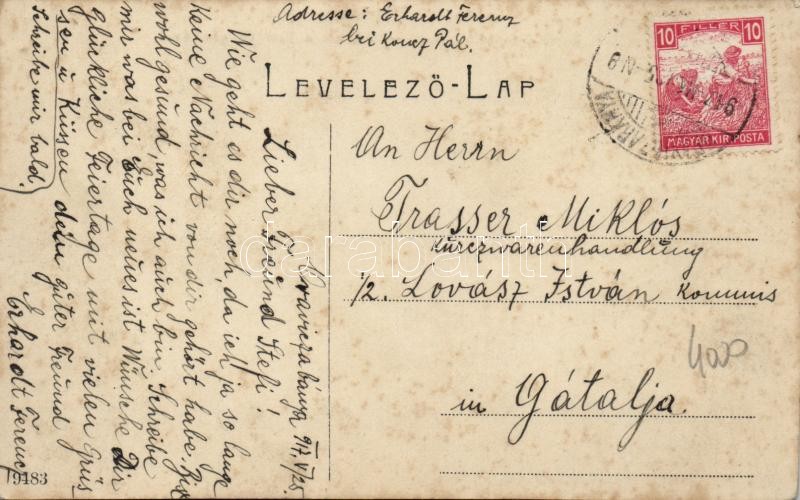 Adresse: Erhardt Ferencz
bei Koncz Pál.
LEVELEZŐ-LAP
10 FILLER 10
MAGYAR KIR. POSTA
An Herrn
Trasser Miklós
Kurczwarenhandlung
1/2. Lovász István Kommis
in Gátalja.
400
Oraviczabánya 917. V/25.
Lieber Freund Stefi!
Wie geht es dir noch, da ich ja so lange
Keine Nachricht von dir gehört habe. Bist
wohl gesund, was ich auch bin. Schreibe
mir was bei Euch neues ist Wünsche Dir
glückliche Feiertage mit vielen Grüs
sen u Küssen dein guter Freund
Schreibe mir bald.
Erhardt Ferencz
9483
darabanth